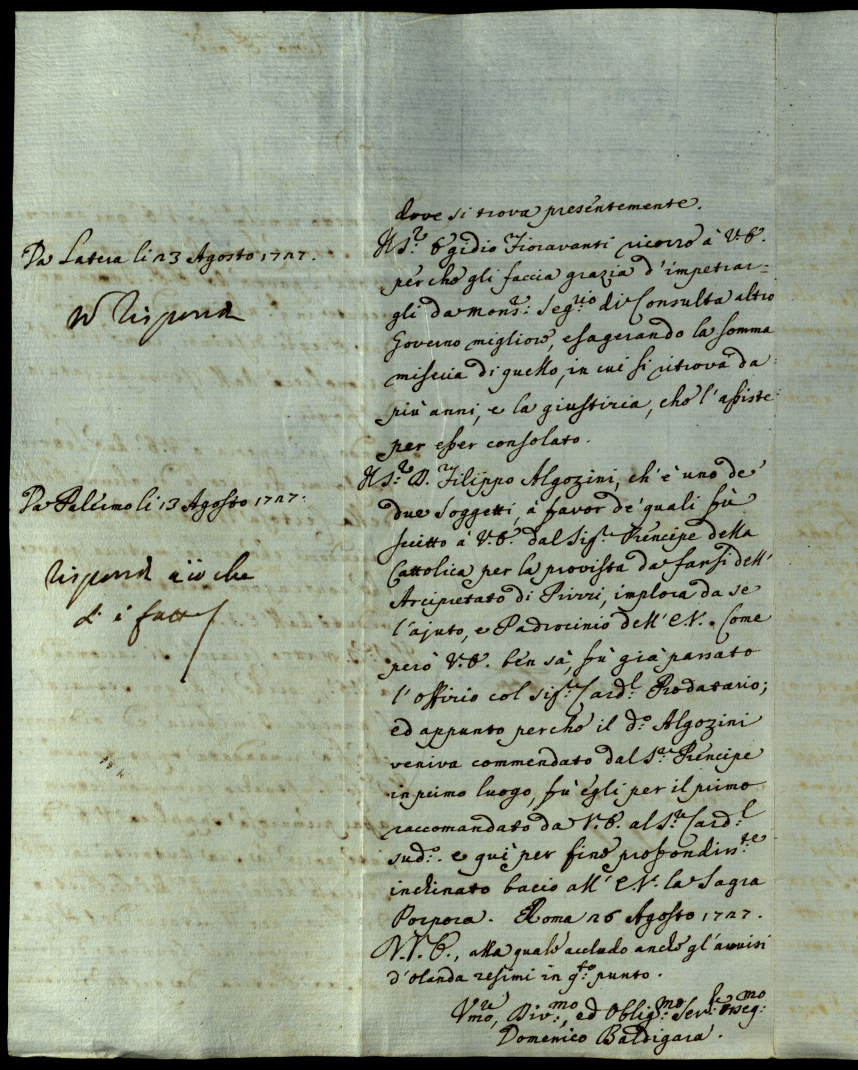 dove si trova presentemente.
Da Latera li 23 Agosto 1727.
Rispond
Il S.re Egidio Fioravanti ricorre à V.E.
perche gli faccia grazia d'impetrar=
gli da Mons.r Seg.rio di Consulta altro
Governo migliore, esagerando la somma
miseria di quello, in cui si ritrova da
più anni, e la giustizia, che l'assiste
per esser consolato.
Da Palermo li 13 Agosto 1727.
Rispond ciò che
si è fatto
Il S.re D. Filippo Algozini, ch'è uno de'
due Soggetti, à favor de' quali fù
scritto à V.E. dal Sig.re Prencipe della
Cattolica per la provista da farsi dell'
Arcipretato di Pizzi, implora da se
l'ajuto, e Padrocinio dell'E.V. Come
però V.E. ben sà, fù già passato
l'offizio col sig.re Card.l Prodatario;
ed appunto perche il d.o Algozini
veniva commendato dal S.re Prencipe
in primo luogo, fù egli per il primo
raccomandato da V.E. al S.re Card.l
sud.o. e quì per fine profondim.te
inchinato bacio all'E.V. la Sagra
Porpora. Roma 26 Agosto 1727.
V.E., alla quale accludo anche gl'avvisi
d'Olanda resimi in q.to punto.
Vmo, Div.mo, ed Oblig.mo Ser.re osseq.mo
Domenico Baldigara.